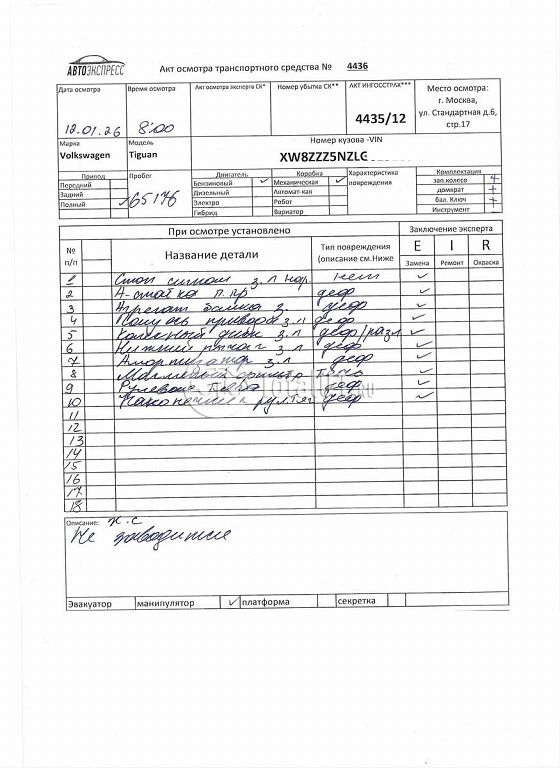 АВТОЭКСПРЕСС
Акт осмотра транспортного средства № 4436
Дата осмотра
Время осмотра
Акт осмотра эксперта СК*
Номер убытка СК**
АКТ ИНГОССТРАХ***
Место осмотра:
г. Москва,
ул. Стандартная д.6,
стр.17
12.01.26
8:00
4435/12
Марка
Volkswagen
Модель
Tiguan
Номер кузова -VIN
XW8ZZZ5NZLG
Привод
Передний
Задний
Полный
Пробег
65176
Двигатель
Бензиновый ✓
Дизельный
Электро
Гибрид
Коробка
Механическая ✓
Автомат-кая
Робот
Вариатор
Характеристика
повреждения
Комплектация
зап.колесо +
домкрат +
бал. Ключ +
Инструмент
При осмотре установлено
Заключение эксперта
№
п/п
Название детали
Тип повреждения
(описание см.Ниже
E I R
Замена Ремонт Окраска
1 Стоп сигнал з.л нар нет ✓
2 А-стойка п.пр деф ✓
3 Агрегат балка з. деф ✓
4 Полуось привода з.л деф ✓
5 Колесный диск з.л деф/разл ✓
6 Нижний рычаг з.л деф ✓
7 Амортизатор з.л деф ✓
8 Масляный фильтр течь ✓
9 Рулевая тяга деф ✓
10 Наконечник рул.тяг деф ✓
11
12
13
14
15
16
17
18
Описание:
Не заводится
Эвакуатор манипулятор ✓ платформа секретка